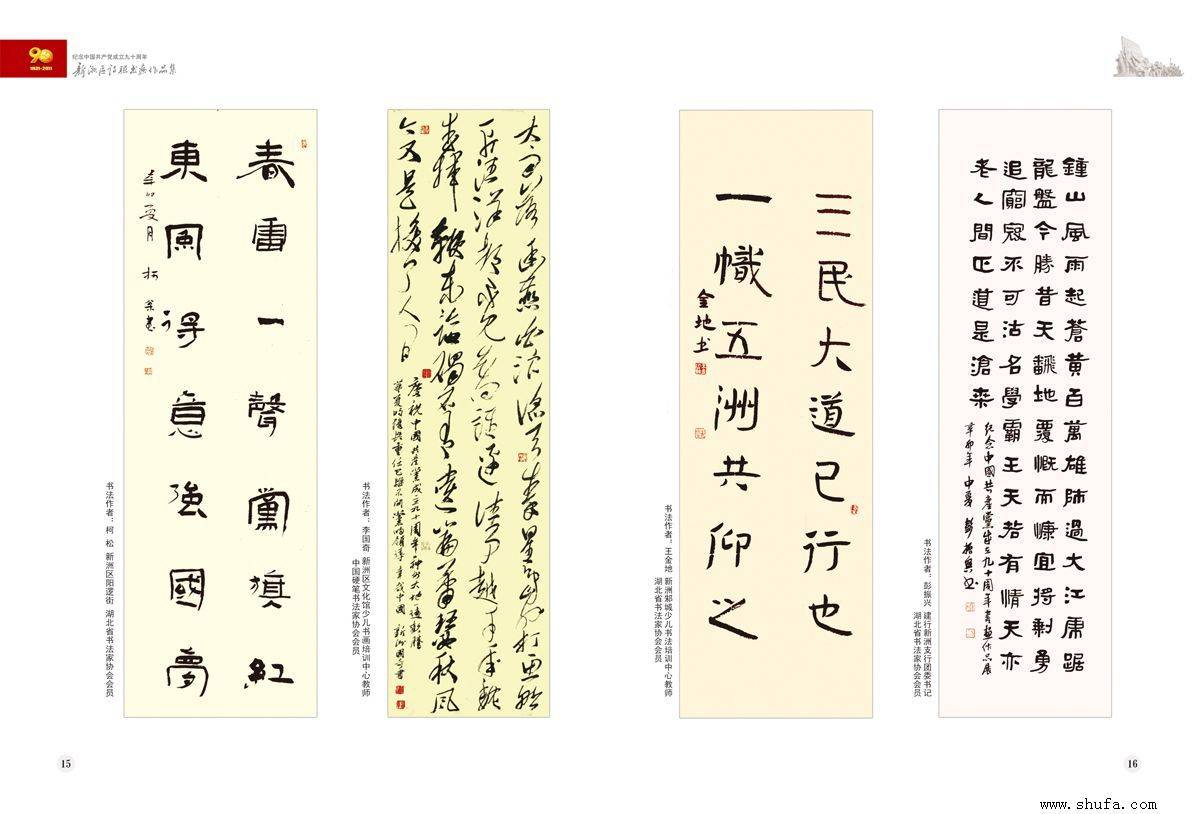 90
1921-2011
纪念中国共产党成立九十周年
新洲区诗联书画作品集
春雷一聲黨旗紅
東風得意強國夢
辛卯夏月 柯松書
书法作者：柯 松 新洲区阳逻街 湖北省书法家协会会员
大雨落幽燕白浪滔天秦皇島外打魚船
一片汪洋都不見知向誰邊往事越千年魏
武揮鞭東臨碣石有遺篇蕭瑟秋風
今又是換了人间
慶祝中國共產黨成立九十周年神州大地
书法作者：李国奇 新洲区文化馆少儿书画培训中心教师
中国硬笔书法家协会会员
三民大道已行也
一幟五洲共仰之
金地书
书法作者：王金地 新洲邾城少儿书法培训中心教师
湖北省书法家协会会员
鍾山風雨起蒼黃百萬雄師過大江虎踞
龍盤今勝昔天翻地覆慨而慷宜將剩勇
追窮寇不可沽名學霸王天若有情天亦
老人間正道是滄桑
纪念中國共產黨成立九十周年書畫作品展
辛卯年中夏彭振興书
书法作者：彭振兴 建行新洲支行团委书记
湖北省书法家协会会员
15
16
www.shufa.com